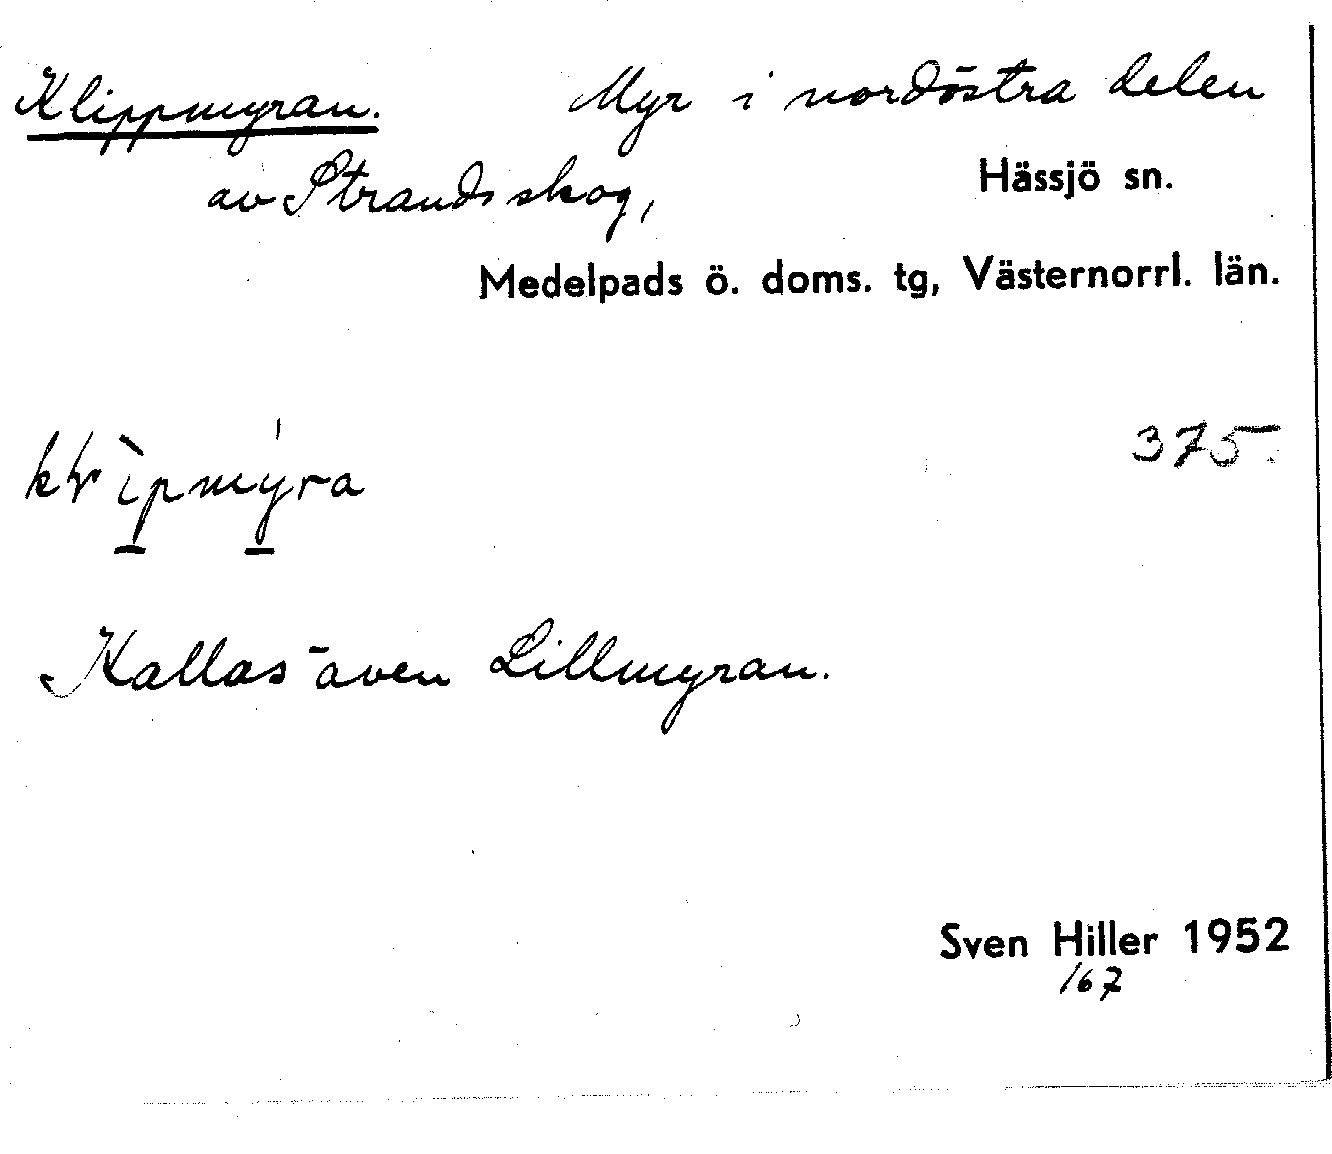 Klippmyran. Myr i nordöstra delen
av Strands skog,
Hässjö sn.
Medelpads ö. doms. tg, Västernorrl. län.
375.
Kallas även Lillmyran.
Sven Hiller 1952
167